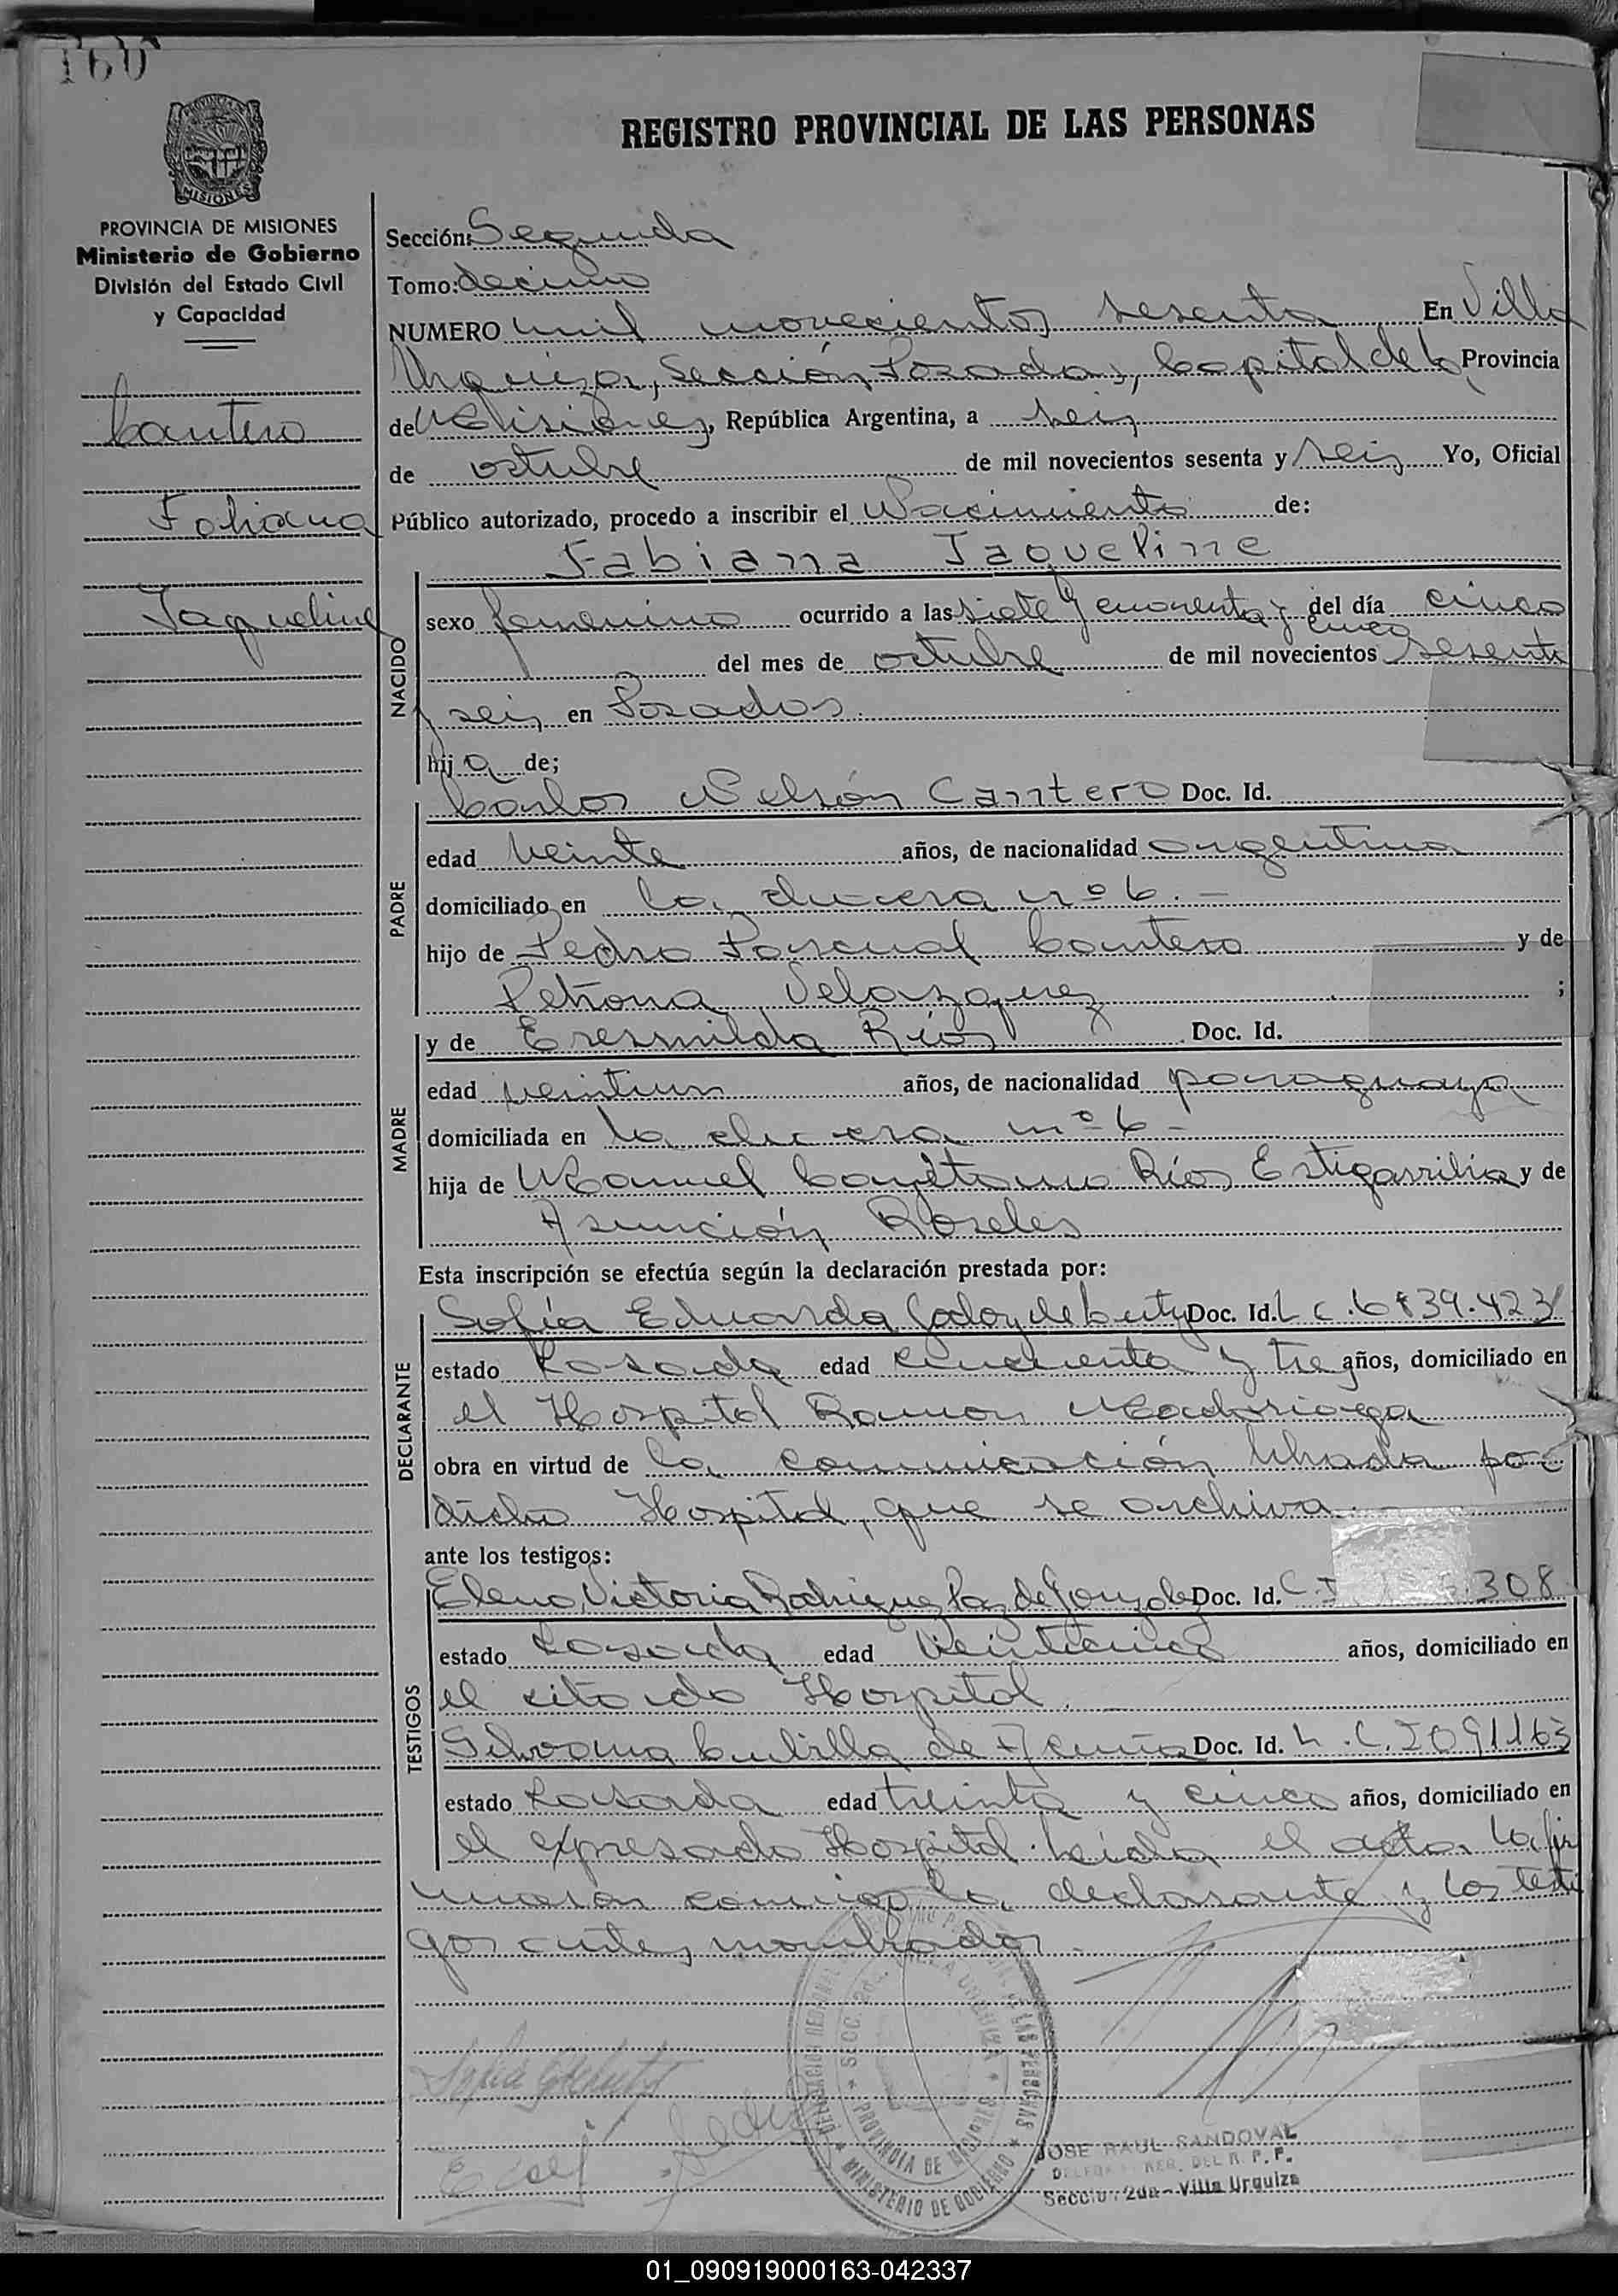 160
REGISTRO PROVINCIAL DE LAS PERSONAS
PROVINCIA DE MISIONES
MISIONES
PROVINCIA DE MISIONES
Ministerio de Gobierno
División del Estado Civil
y Capacidad
Cantero
Fabiana
Jaqueline
Sección: Segunda
Tomo: decimo
NUMERO mil novecientos sesenta En Villa
Urquiza, Sección Posadas, Capital de la Provincia
de Misiones, República Argentina, a seis
de octubre de mil novecientos sesenta y seis Yo, Oficial
Público autorizado, procedo a inscribir el Nacimiento de:
Fabiana Jaqueline
NACIDO
sexo femenino ocurrido a las siete y cuarenta y cinco del día cinco
del mes de octubre de mil novecientos sesenta
y seis en Posadas
hija de;
PADRE
Carlos Nelsón Cantero Doc. Id.
edad veinte años, de nacionalidad argentina
domiciliado en la chacra nº 6. —
hijo de Pedro Pascual Cantero y de
Petrona Velazquez ;
MADRE
y de Eresmilda Ríos Doc. Id.
edad veintiun años, de nacionalidad paraguaya
domiciliada en la chacra nº 6 -
hija de Manuel Cayetano Ríos Estigarribia y de
Asunción Roseles
Esta inscripción se efectúa según la declaración prestada por:
DECLARANTE
Sofía Eduarda Godoy de Doc. Id. L C. 6839.423
estado Casada edad cincuenta y tres años, domiciliado en
el Hospital Ramon Madariaga
obra en virtud de la comunicación librada por
dicho Hospital, que se archiva. —
ante los testigos:
TESTIGOS
Elena Victoria Rodriguez Paz de Gonzalez Doc. Id. C. I 308
estado Casada edad Veinticinco años, domiciliado en
el citado Hospital.
Silvana de Acuña Doc. Id. L. C. 2091163
estado Casada edad treinta y cinco años, domiciliado en
el expresado Hospital. Leida el acta, la fir
maron conmigo la declarante y los testi
gos antes nombrados.
SECC. 2da. VILLA URQUIZA
PROVINCIA DE MISIONES
MINISTERIO DE GOBIERNO
DELEGACION REGIONAL DE LAS PERSONAS
JOSE RAUL SANDOVAL
DELEGADO REG. DEL R. P. P.
Sección 2da - Villa Urquiza
01_090919000163-042337